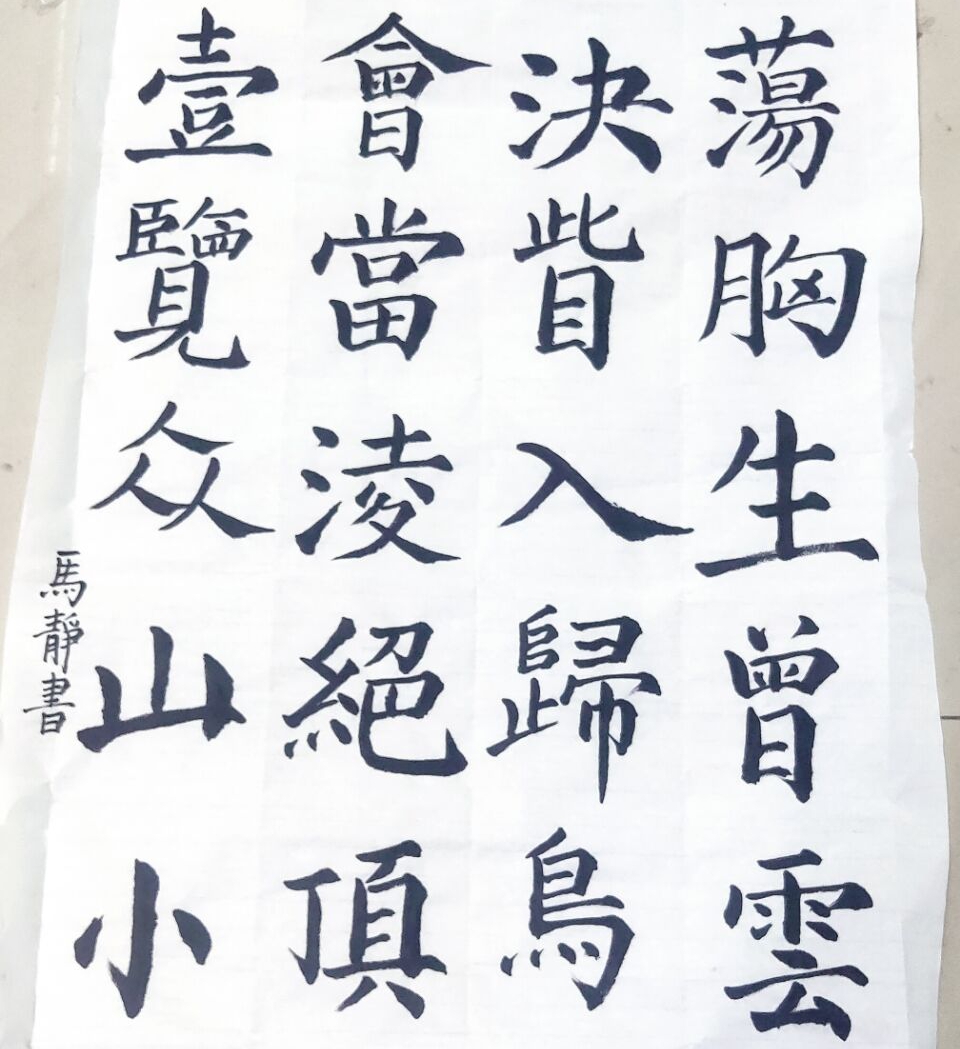 蕩胸生曾雲
決眥入歸鳥
會當淩絕頂
壹覽众山小
馬靜書